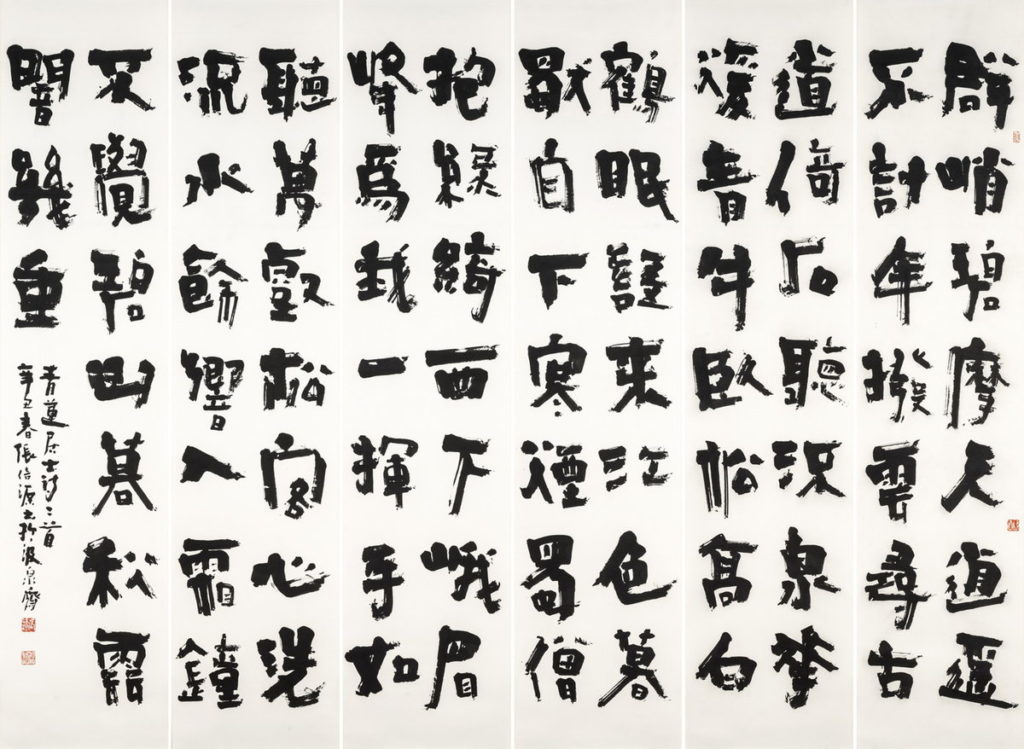 群峭碧摩天逍遥
不計年撥雲尋古
道倚石聽流泉華
暖青牛臥松高白
鶴眠語來江色暮
獨自下寒煙蜀僧
抱綠綺西下峨眉
峰爲我一揮手如
聽萬壑松客心洗
流水餘響入霜鐘
不覺碧山暮秋雲
闇幾重
青蓮居士詩二首
辛丑春張信源於汲泉齋